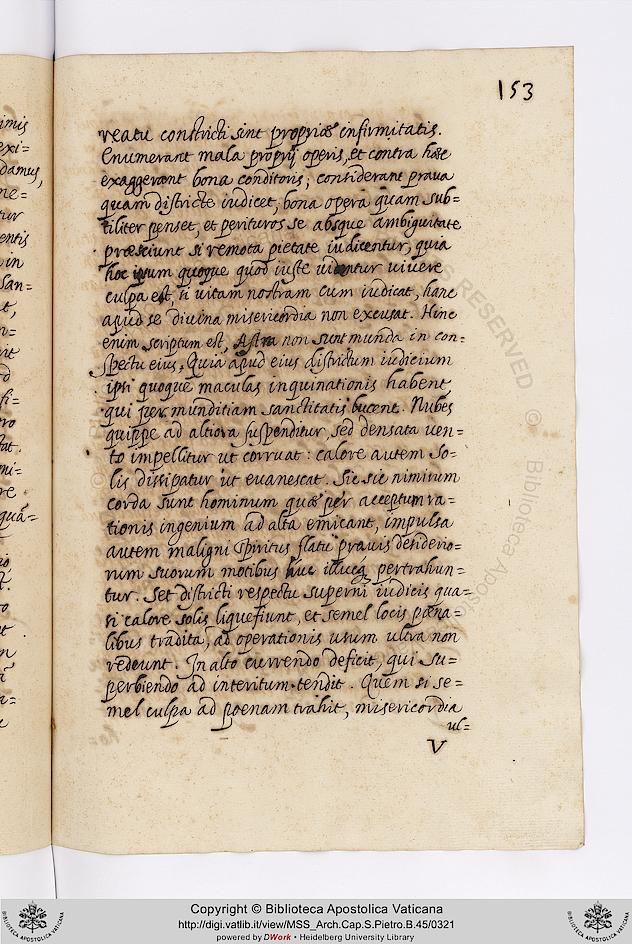 153
reatu constricti sint propriæ infirmitatis.
Enumerant mala proprij operis, et contra hæc
exaggerant bona conditoris; considerant praua
quam districte iudicet, bona opera quam sub=
tiliter penset, et perituros se absque ambiguitate
præsciunt si remota pietate iudicentur, quia
hoc ipsum quoque quod iuste uidentur uiuere
culpa est, si uitam nostram cum iudicat, hanc
apud se diuina misericordia non excusat. Hinc
enim scriptum est, Astra non sunt munda in con=
spectu eius, Quia apud eius districtum iudicium
ipsi quoque maculas inquinationis habent
qui per munditiam sanctitatis lucent. Nubes
quippe ad altiora suspenditur, sed densata uen=
to impellitur ut corruat: calore autem so=
lis dissipatur ut euanescat. Sic sic nimirum
corda sunt hominum quæ per acceptum ra=
tionis ingenium ad alta emicant, impulsa
autem maligni spiritus flatu prauis desiderio=
rum suorum motibus huc illucq pertrahun=
tur. Set districti respectu superni iudicis qua=
si calore solis liquefiunt, et semel locis pœna=
libus tradita, ad operationis usum ultra non
redeunt. In alto currendo deficit, qui su=
perbiendo ad interitum tendit. Quem si se=
mel culpa ad poenam trahit, misericordia
ul=
V
imis
exi=
damus,
ne=
tur
entis
in
San=
t,
n=
rit
d
fi=
tro
tat.
mi=
re
quã=
io
t.
to
et
n
ã
a=
RESERVED ©
© Biblioteca Aposto
Copyright © Biblioteca Apostolica Vaticana
http://digi.vatlib.it/view/MSS_Arch.Cap.S.Pietro.B.45/0321
powered by DWork • Heidelberg University Library